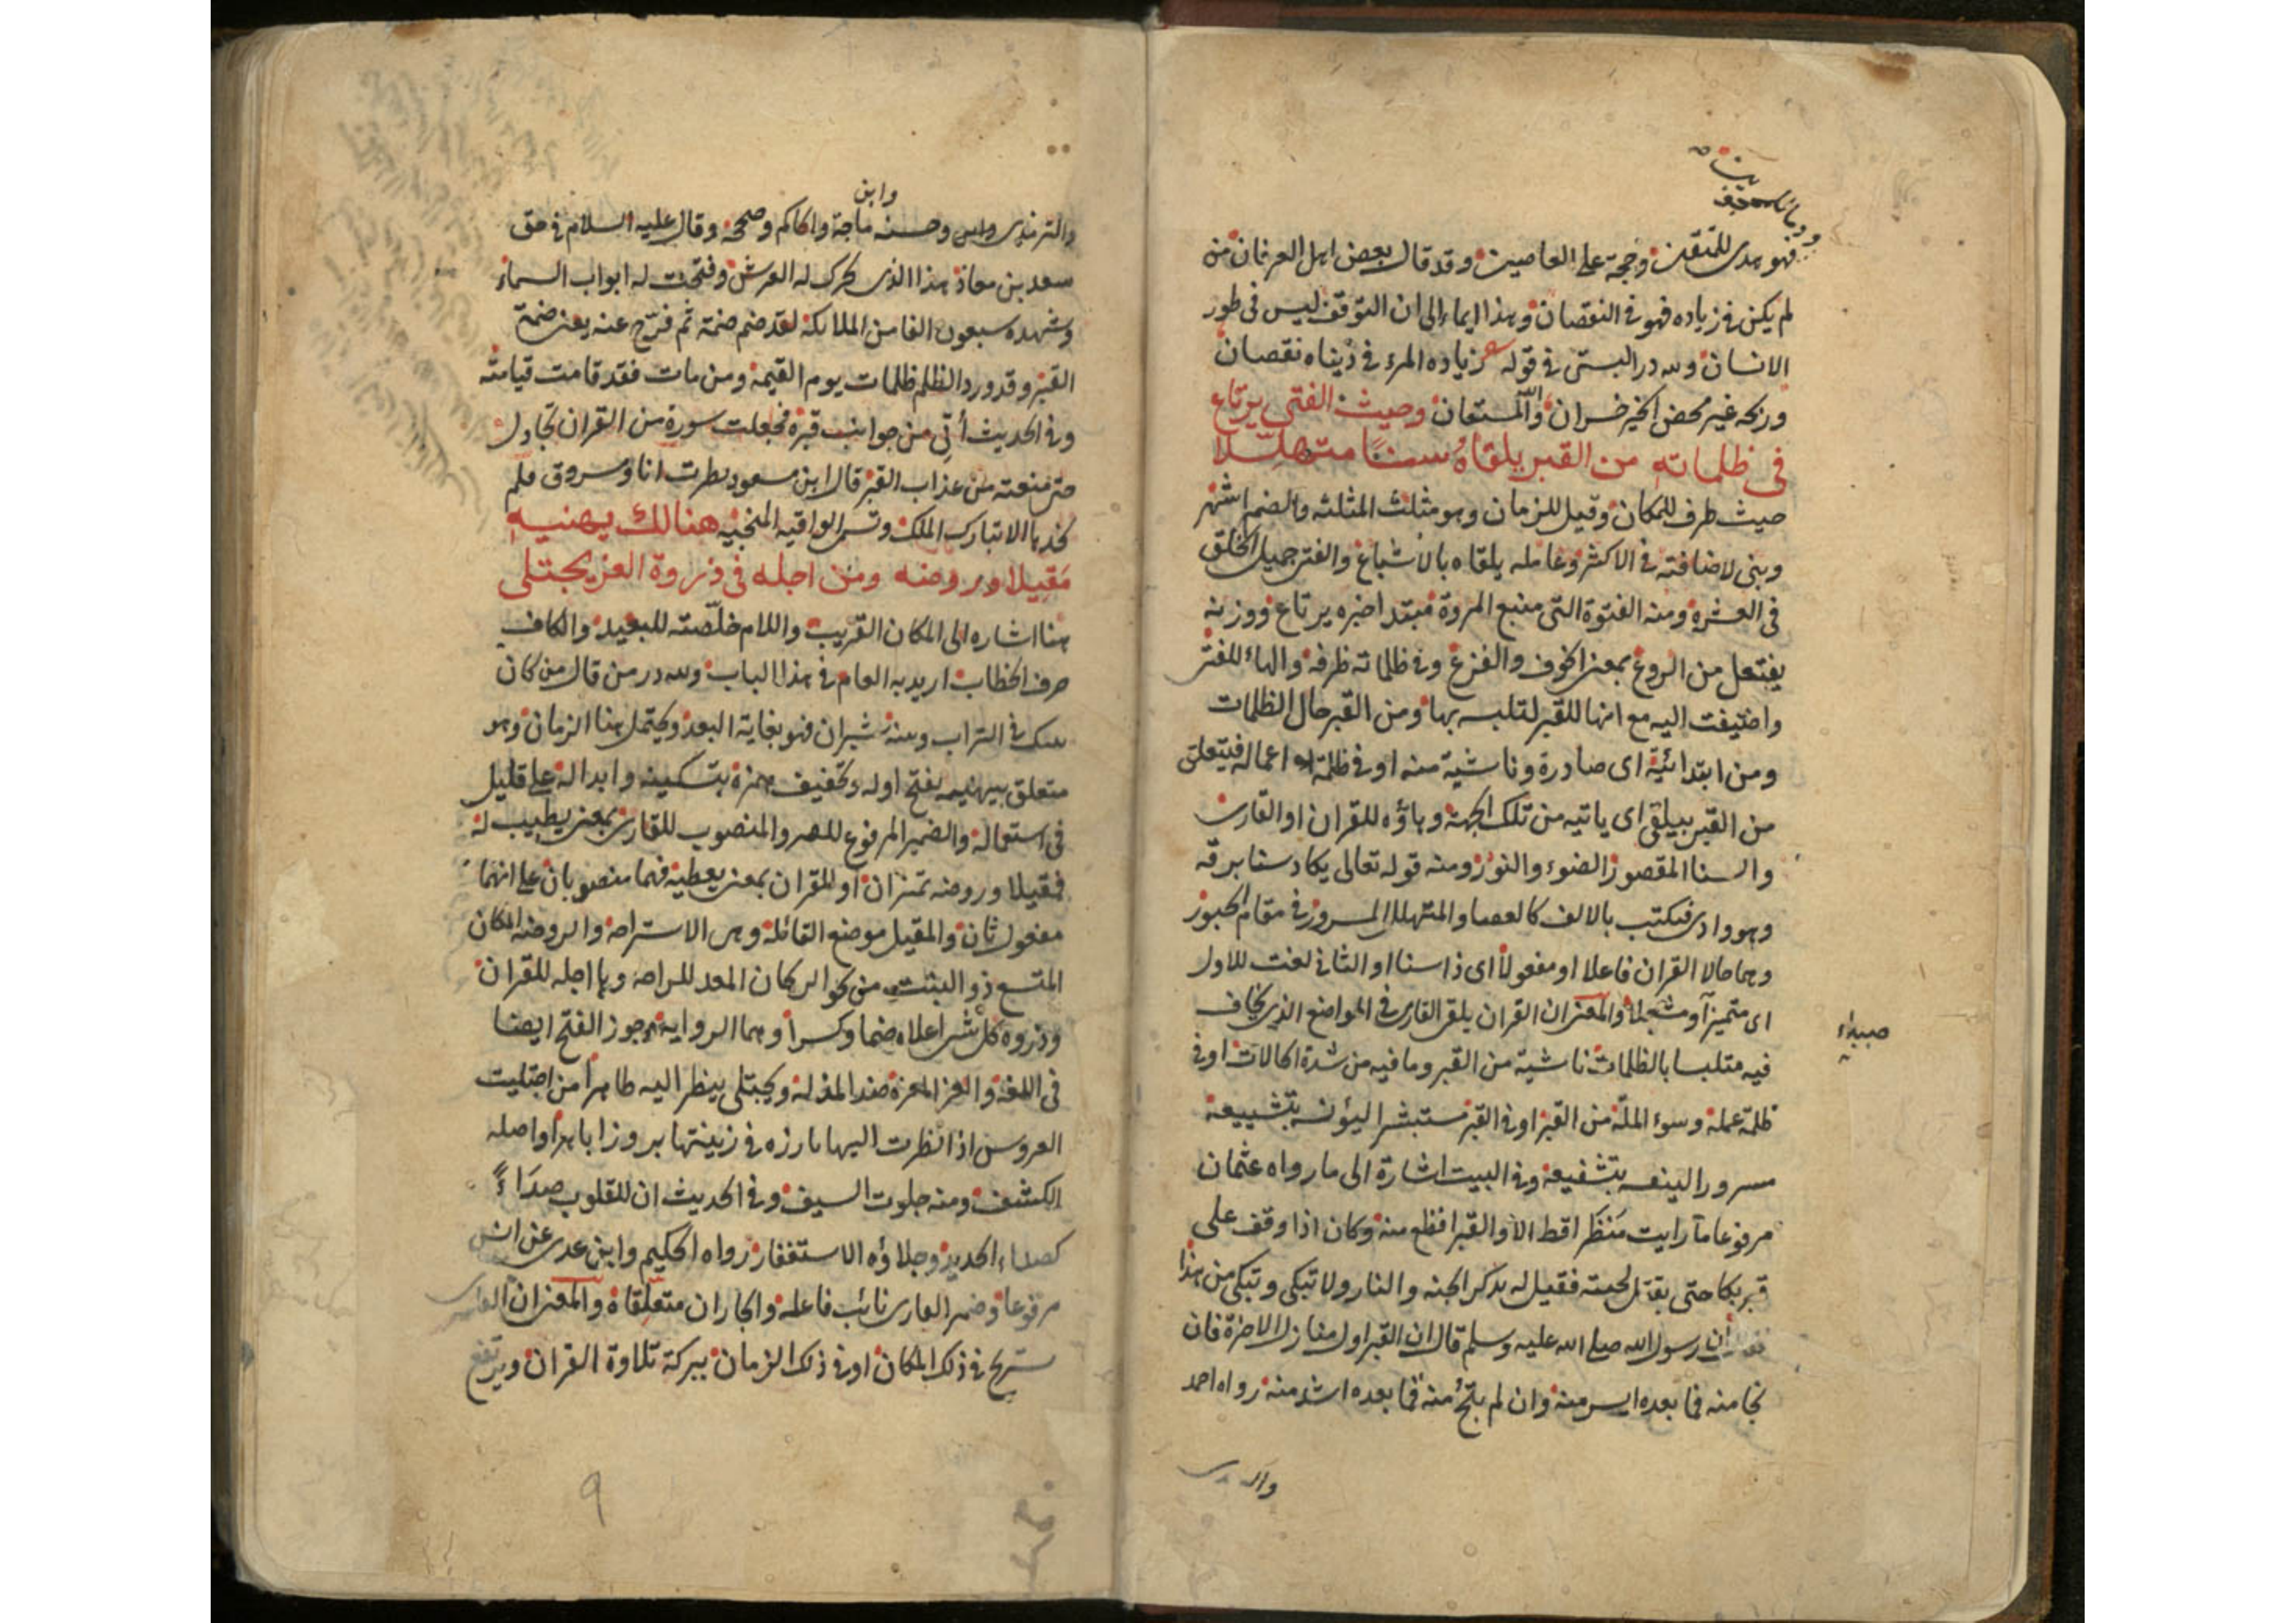 فهو هدى للمتقين وحجة على العاصين وقد قال بعض اهل العرفان من
لم يكن فى زياده فهو فى النقصان وهذا ايماء الى ان التوقف ليس فى طور
الانسان ولله در البستى فى قوله زياده المرء فى دنياه نقصان
وربحه غير محض الخير خسران والله المستعان وحيث الفتى يرتاع
فى ظلماته من القبر يلقاه سنا متهللا
حيث ظرف للمكان وقيل للزمان وهو مثلث المثلثه والضم اشهر
وبنى لاضافته فى الاكثر وعامله يلقاه بالاشباع والفتى جميل الخلق
فى العشره ومنه الفتوة التى منبع المروة مبتدا خبره يرتاع ووزنه
يفتعل من الروع بمعنى الخوف والفزع وفى ظلماته ظرفه والهاء للفتى
واضيفت اليه مع انها للقبر لتلبسه بها ومن القبر حال الظلمات
ومن ابتدائية اى صادرة وناشية منه او فى ظلمة اعماله فيتعلق
من القبر بيلقى اى ياتيه من تلك الجهة وهاؤه للقران او القارى
والسنا المقصور الضوء والنور ومنه قوله تعالى يكاد سنا برقه
وهو وادى فيكتب بالالف كالعصا والمتهلل المسرور فى مقام الحبور
وهما حالا القران فاعلا او مفعولا اى ذا سنا او الثانى نعت للاول
اى متميزا والمعنى ان القران يلقى القارى فى المواضع الذى يخاف
فيه متلبسا بالظلمات ناشية من القبر وما فيه من شدة الحالات او فى
ظلمة عمله وسوء الملة من القبر او فى القبر مستبشرا ليؤنسه بتشييعه
مسرورا لينفعه بتشفيعه وفى البيت اشارة الى ما رواه عثمان
مرفوعا ما رايت منظرا قط الا والقبر افظع منه وكان اذا وقف على
قبر بكا حتى بقتل لحيته فقيل له يذكر الجنه والنار ولا تبكى وتبكى من هذا
ان رسول الله صلى الله عليه وسلم قال ان القبر اول منازل الاخرة فان
نجا منه فما بعده ايسر منه وان لم ينج منه فما بعده اشد منه رواه احمد
وابن
والترمذى وحسنه ماجة والحاكم وصححه وقال عليه السلام فى حق
سعد بن معاذ هذا الذى تحرك له العرش وفتحت له ابواب السماء
وشهده سبعون الفا من الملائكة لقد ضم ضمة ثم فرج عنه يعنى ضمة
القبر وقد ورد الظلم ظلمات يوم القيمة ومن مات فقد قامت قيامته
وفى الحديث أتى من جوانب قبره فجعلت سورة من القران تجادل
حتى منعته من عذاب القبر قال ابن مسعود نظرت انا ومسروق فلم
نجدها الا تبارك الملك وتسمى الواقيه المنجيه هنالك يهنيه
مقيلا وروضه ومن اجله فى ذروة العز يجتلى
هنا اشاره الى المكان القريب واللام خلصته للبعيد والكاف
حرف الخطاب اريد به العام فى هذا الباب ولله در من قال من كان
فى التراب وبينه شبران فهو بغاية البعد ويحتمل هنا الزمان وهو
متعلق بيهنيه بفتح اوله وتخفيف همزة بتسكينه وابداله على قليل
فى استعماله والضمير المرفوع للـ والمنصوب للقارى بمعنى يطيب له
فمقيلا وروضه تمييزان او للقران بمعنى يعطيه فهما منصوبان على انهما
مفعول ثان والمقيل موضع القائلة وهى الاستراحه والروضه المكان
المتسع ذو النبت من نحو الريحان المعد للراحه وها اجله للقران
وذروه كل شى اعلاه ضما وكسرا وهما الروايه وجوز الفتح ايضا
فى اللغه والعز العزة ضد المذلة ويجتلى ينظر اليه ظاهرا من اجتليت
العروس اذا نظرت اليها بارزه فى زينتها بروزا باهرا واصله
الكشف ومنه جلوت السيف وفى الحديث ان للقلوب صداءً
كصداء الحديد وجلاؤه الاستغفار رواه الحكيم وابن عدى عن انس
مرفوعا وضمير القارى نائب فاعله والجاران متعلقاه والمعنى ان القارى
يستريح فى ذلك المكان او فى ذلك الزمان ببركة تلاوة القران ويرتفع
٩